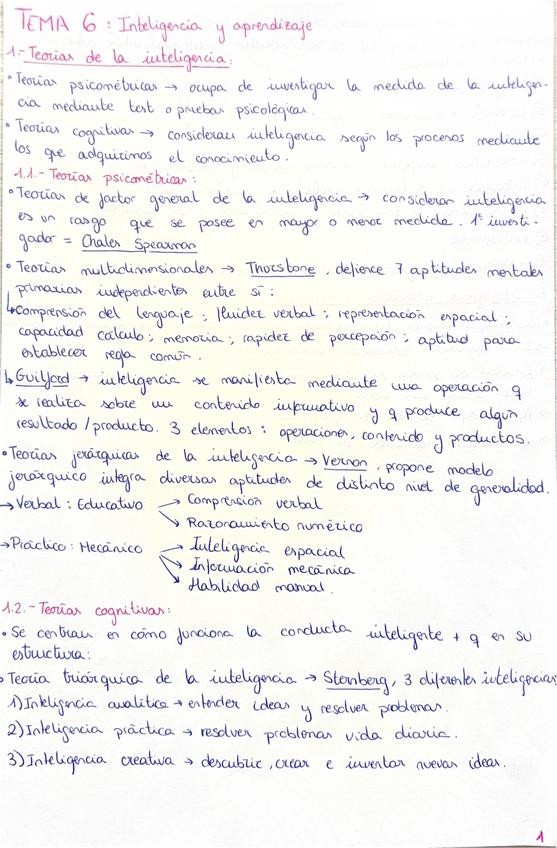 TEMA 6 : Inteligencia y aprendizaje
1.- Teorías de la inteligencia:
• Teorías psicométricas → ocupa de investigar la medida de la inteligen-
cia mediante test o pruebas psicológicas.
• Teorías cognitivas → consideran inteligencia según los procesos mediante
los que adquirimos el conocimiento.
1.1.- Teorías psicométricas:
• Teorías de factor general de la inteligencia → consideran inteligencia
es un rasgo que se posee en mayor o menor medida. 1º investi-
gador = Chales Spearman
• Teorías multidimensionales → Thurstone, defience 7 aptitudes mentales
primarias independientes entre sí :
↳ Comprensión del lenguaje ; fluidez verbal ; representación espacial ;
capacidad cálculo ; memoria ; rapidez de percepción ; aptitud para
establecer regla común.
↳ Guilford → inteligencia se manifiesta mediante una operación q
se realiza sobre un contenido informativo y q produce algún
resultado / producto. 3 elementos : operaciones, contenido y productos.
• Teorías jerárquicas de la inteligencia → Vernon, propone modelo
jerárquico integra diversas aptitudes de distinto nivel de generalidad.
→ Verbal : Educativo → Comprensión verbal
→ Razonamiento numérico
→ Práctico : Mecánico → Inteligencia espacial
→ Información mecánica
→ Habilidad manual.
1.2.- Teorías cognitivas:
• Se centran en cómo funciona la conducta inteligente + q en su
estructura:
• Teoría triárquica de la inteligencia → Sternberg, 3 diferentes inteligencias:
1) Inteligencia analítica → entender ideas y resolver problemas.
2) Inteligencia práctica → resolver problemas vida diaria.
3) Inteligencia creativa → descubrir, crear e inventar nuevas ideas.
1